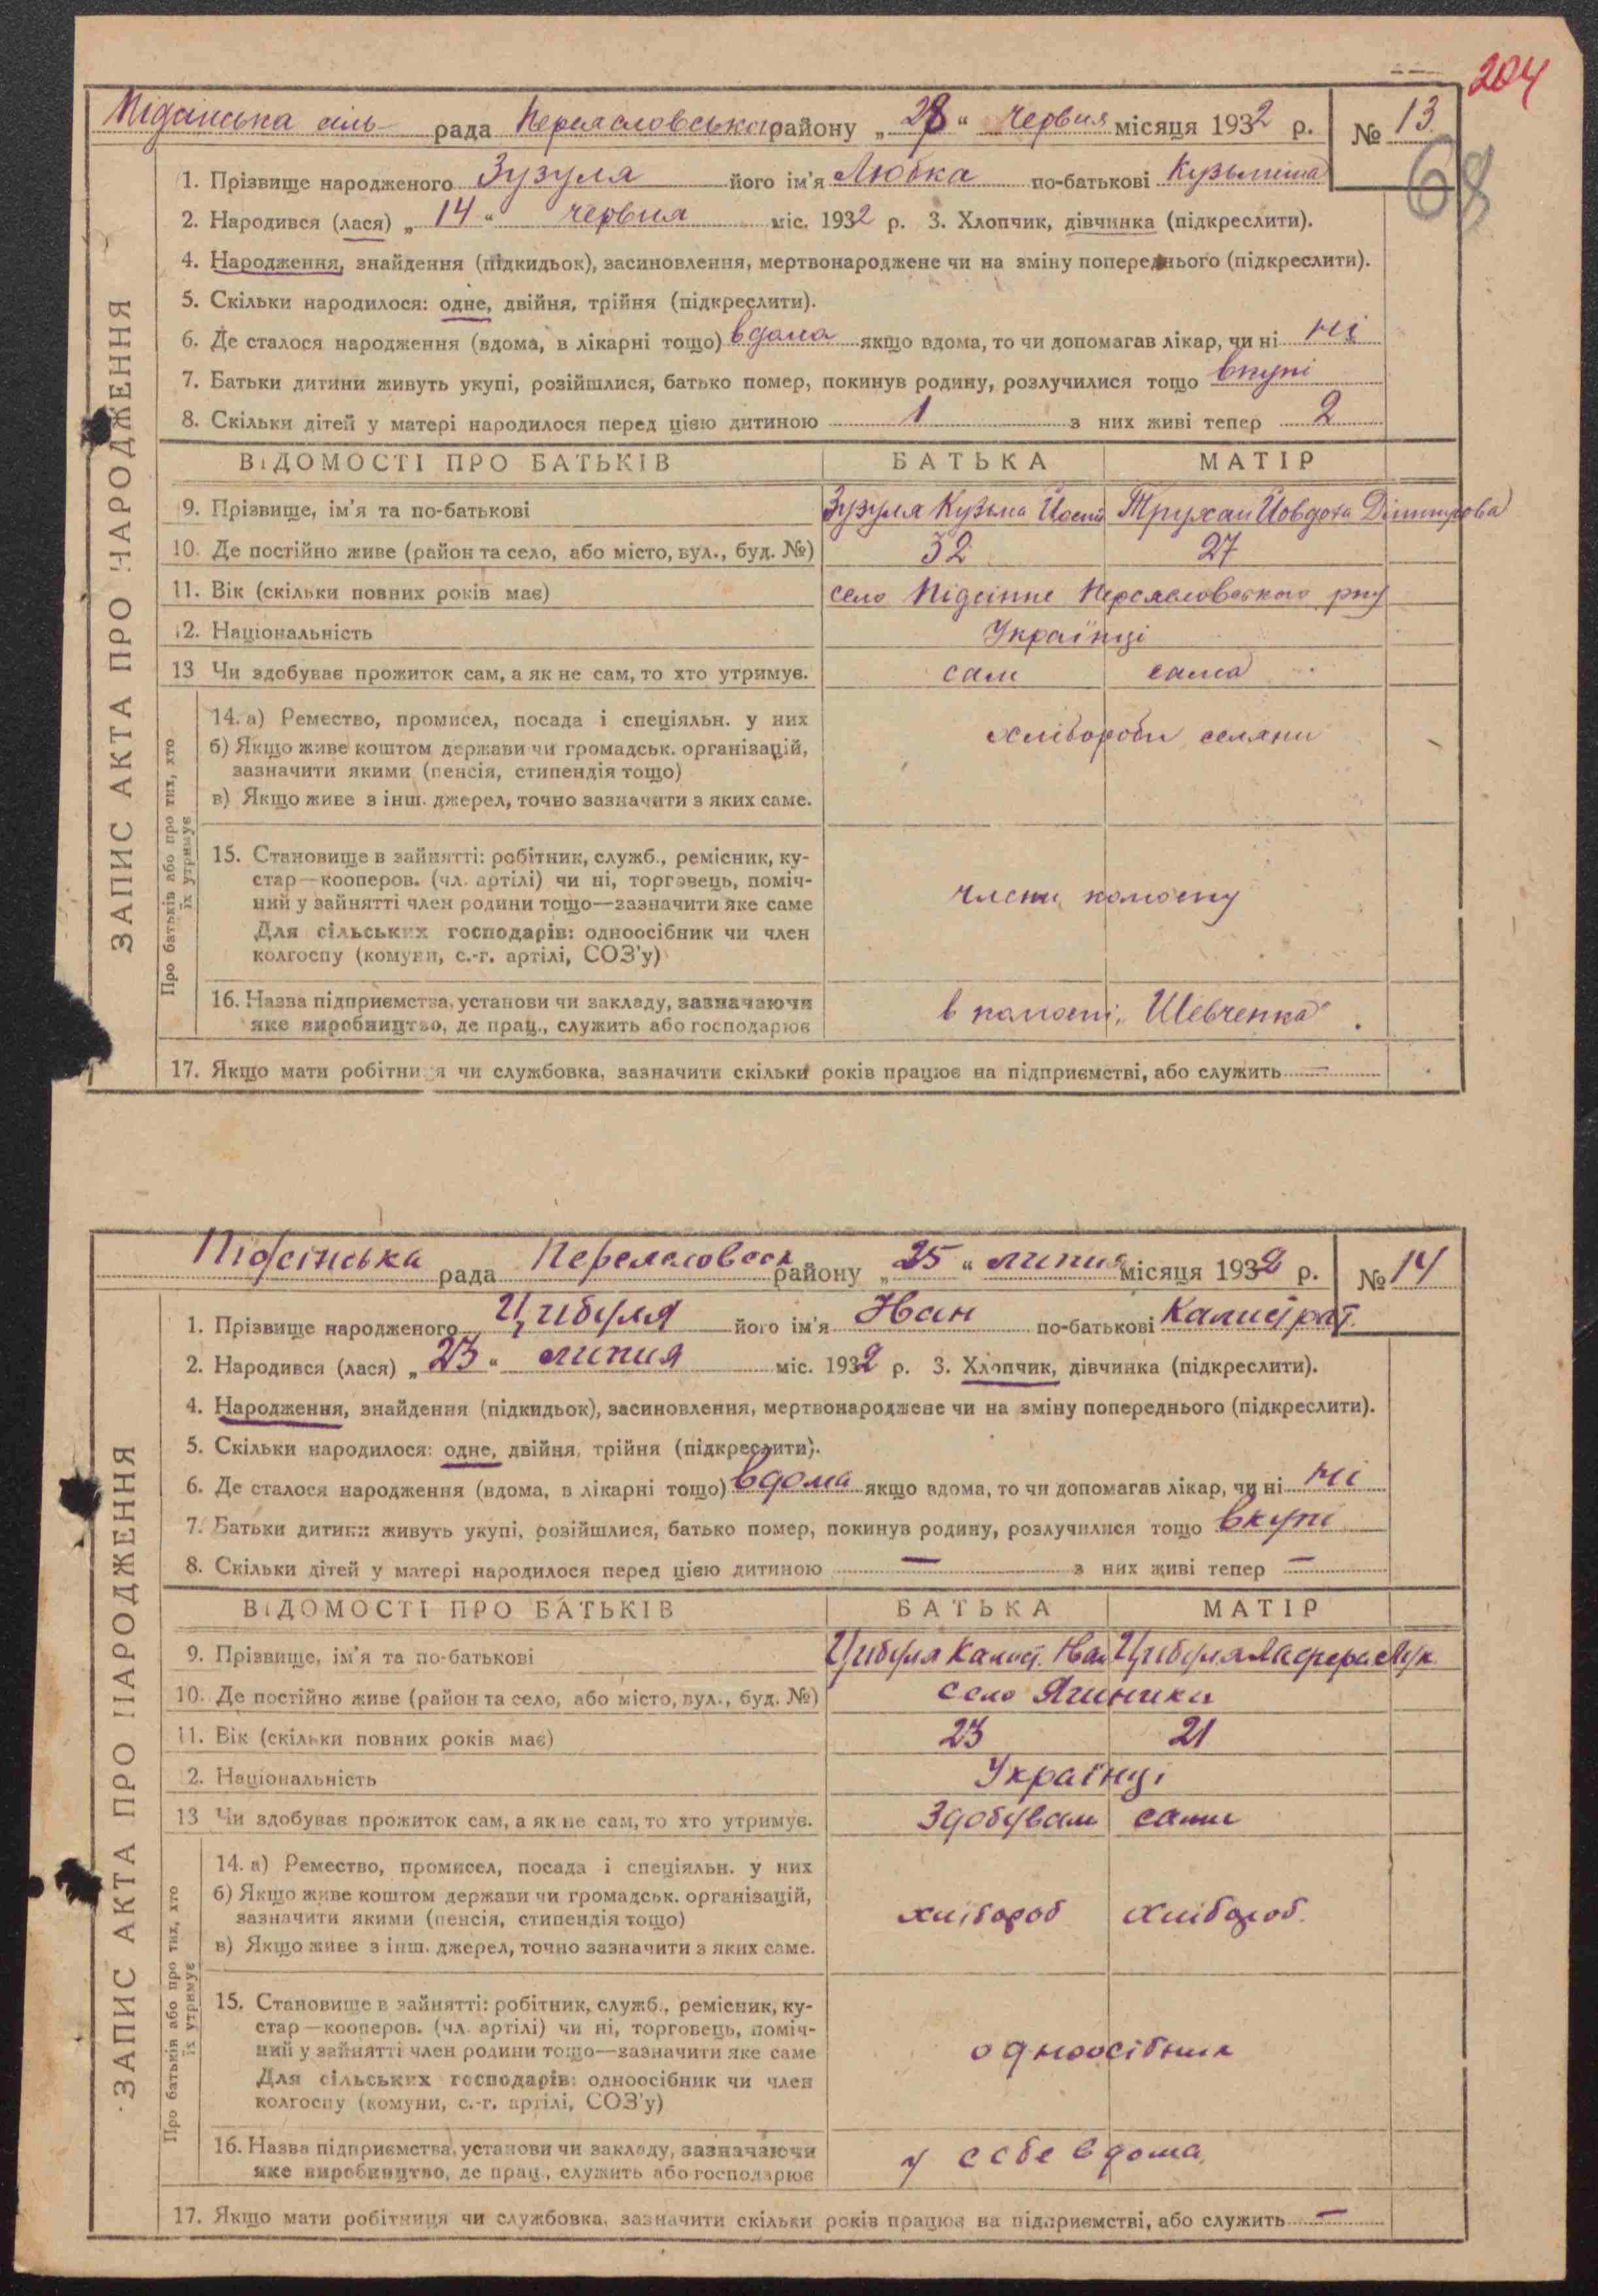 204
Підсінська сіль- рада Переясловська району „28“ червня місяця 1932 р. № 13
68
1. Прізвище народженого Зузуля його ім'я Любка по-батькові Кузьмінa
2. Народився (лася) „14“ червня міс. 1932 р. 3. Хлопчик, дівчинка (підкреслити).
4. Народження, знайдення (підкидьок), засиновлення, мертвонароджене чи на зміну попереднього (підкреслити).
5. Скільки народилося: одне, двійня, трійня (підкреслити).
6. Де сталося народження (вдома, в лікарні тощо) вдома якщо вдома, то чи допомагав лікар, чи ні ні
7. Батьки дитини живуть укупі, розійшлися, батько помер, покинув родину, розлучилися тощо вкупі
8. Скільки дітей у матері народилося перед цією дитиною 1 з них живі тепер 2
ВІДОМОСТІ ПРО БАТЬКІВ БАТЬКА МАТІР
9. Прізвище, ім'я та по-батькові Зузуля Кузьма Йосип Трухан Йовдоха Дімитрова
10. Де постійно живе (район та село, або місто, вул., буд. №) 32 27
11. Вік (скільки повних років має) село Підсінне Переясловського рну
12. Національність Українці
13 Чи здобуває прожиток сам, а як не сам, то хто утримує. сам сама
14. а) Ремество, промисел, посада і спеціяльн. у них
б) Якщо живе коштом держави чи громадськ. організацій, хлібороби селяни
зазначити якими (пенсія, стипендія тощо)
в) Якщо живе з інш. джерел, точно зазначити з яких саме.
15. Становище в зайнятті: робітник, служб., ремісник, ку-
стар—кооперов. (чл. артілі) чи ні, торговець, поміч-
ний у зайнятті член родини тощо—зазначити яке саме члени колгоспу
Для сільських господарів: одноосібник чи член
колгоспу (комуни, с.-г. артілі, СОЗ'у)
16. Назва підприємства, установи чи закладу, зазначаючи в колгоспі „Шевченка“
яке виробництво, де прац., служить або господарює
17. Якщо мати робітниця чи службовка, зазначити скільки років працює на підприємстві, або служить —
ЗАПИС АКТА ПРО НАРОДЖЕННЯ
Про батьків або про тих, хто
їх утримує
Підсінська рада Переясловськ району „25“ липня місяця 1932 р. № 14
1. Прізвище народженого Цибуля його ім'я Іван по-батькові Калистрат.
2. Народився (лася) „23“ липня міс. 1932 р. 3. Хлопчик, дівчинка (підкреслити).
4. Народження, знайдення (підкидьок), засиновлення, мертвонароджене чи на зміну попереднього (підкреслити).
5. Скільки народилося: одне, двійня, трійня (підкреслити).
6. Де сталося народження (вдома, в лікарні тощо) вдома якщо вдома, то чи допомагав лікар, чи ні ні
7. Батьки дитини живуть укупі, розійшлися, батько помер, покинув родину, розлучилися тощо вкупі
8. Скільки дітей у матері народилося перед цією дитиною — з них живі тепер —
ВІДОМОСТІ ПРО БАТЬКІВ БАТЬКА МАТІР
9. Прізвище, ім'я та по-батькові Цибуля Калист. Іван Цибуля Лук.
10. Де постійно живе (район та село, або місто, вул., буд. №) село Ягиники
11. Вік (скільки повних років має) 23 21
2. Національність Українці
13 Чи здобуває прожиток сам, а як не сам, то хто утримує. Здобувам сами
14. а) Ремество, промисел, посада і спеціяльн. у них
б) Якщо живе коштом держави чи громадськ. організацій,
зазначити якими (пенсія, стипендія тощо) хлібороб хлібороб.
в) Якщо живе з інш. джерел, точно зазначити з яких саме.
15. Становище в зайнятті: робітник, служб., ремісник, ку-
стар—кооперов. (чл. артілі) чи ні, торговець, поміч-
ний у зайнятті член родини тощо—зазначити яке саме одноосібник
Для сільських господарів: одноосібник чи член
колгоспу (комуни, с.-г. артілі, СОЗ'у)
16. Назва підприємства, установи чи закладу, зазначаючи у себе вдома
яке виробництво, де прац., служить або господарює
17. Якщо мати робітниця чи службовка, зазначити скільки років працює на підприємстві, або служить —
ЗАПИС АКТА ПРО НАРОДЖЕННЯ
Про батьків або про тих, хто
їх утримує